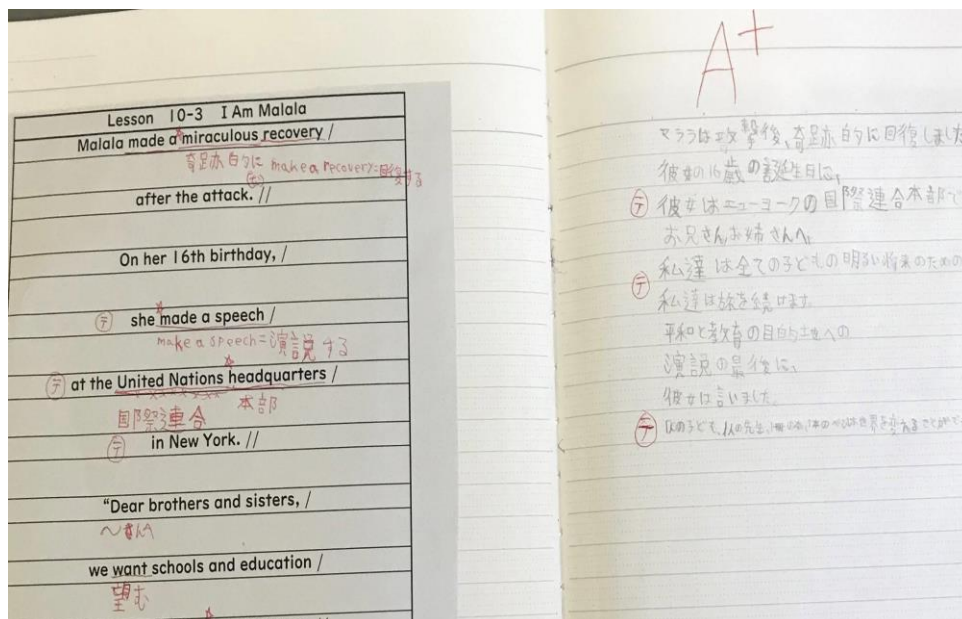 Lesson 10-3 I Am Malala
Malala made a miraculous recovery /
奇跡的に make a recovery=回復する
after the attack. //
On her 16th birthday, /
テ she made a speech /
make a speech=演説する
テ at the United Nations headquarters /
国際連合 本部
テ in New York. //
"Dear brothers and sisters, /
〜さんへ
we want schools and education /
望む
A+
マララは攻撃後、奇跡的に回復しました
彼女の16歳の誕生日に、
テ 彼女はニューヨークの国際連合本部で
お兄さんお姉さんへ、
テ 私達は全ての子どもの明るい将来のための
私達は旅を続けます
平和と教育の目的地への
演説の最後に、
彼女は言いました。
テ 1人の子ども、1人の先生、1冊の本、1本のペンは世界を変えることがで